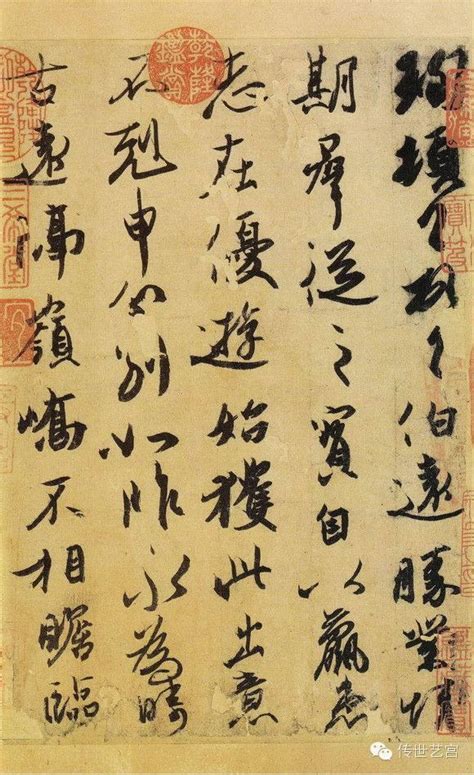 珣頓首頓首伯遠勝業情
期羣從之寶自以羸患
志在優遊始獲此出意
不剋申分別如昨永為疇
古遠隔嶺嶠不相瞻臨
乾隆鑑賞
传世艺宫